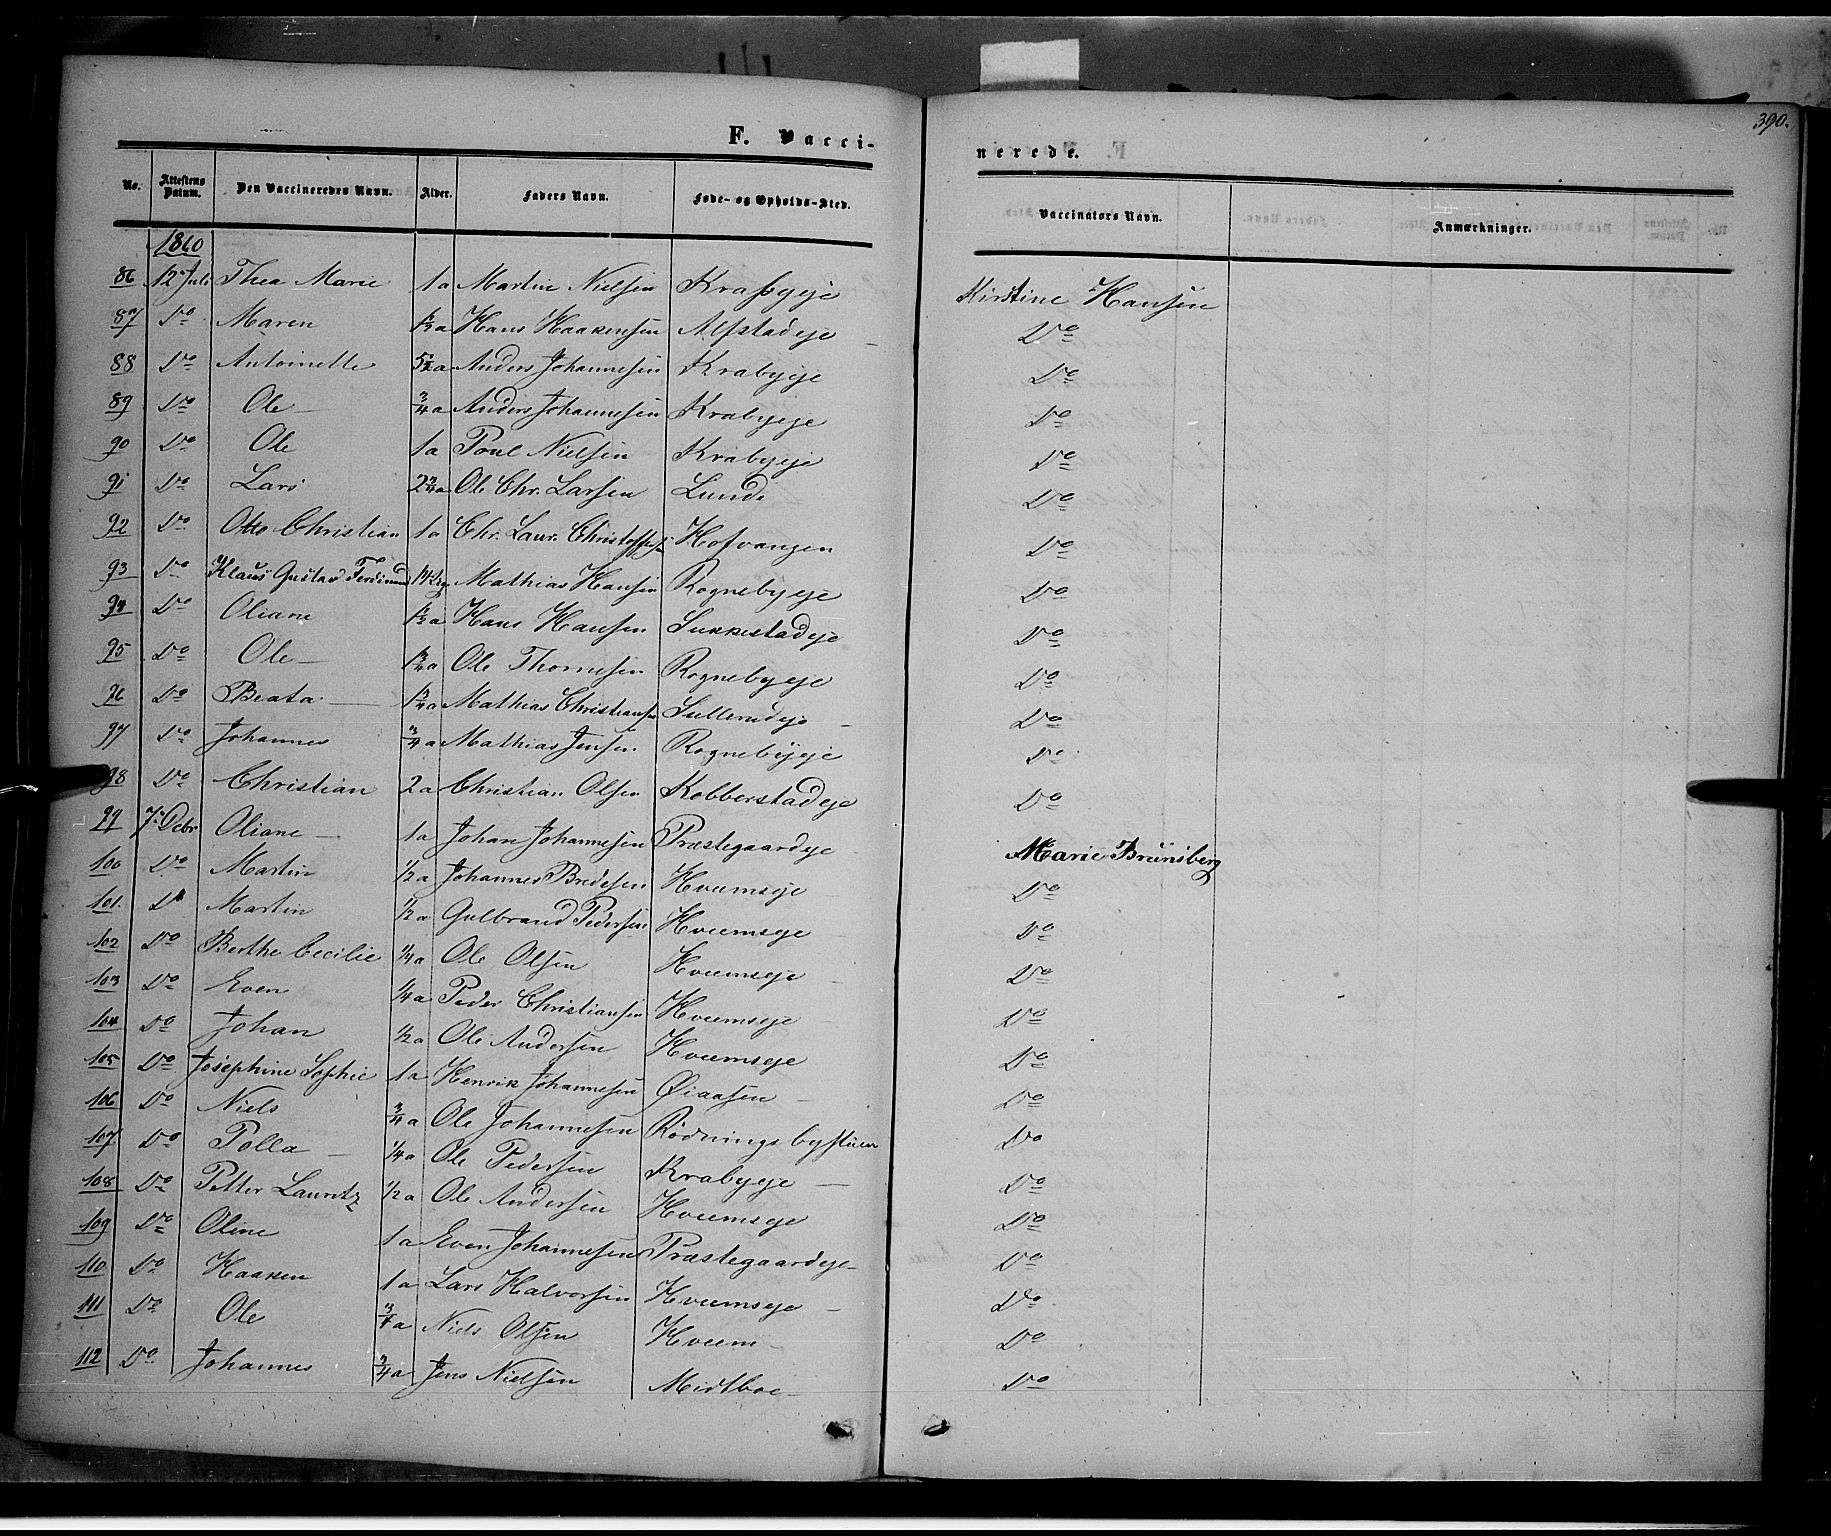 390.
F. Vacci-
nerede.
No. Attestens Datum. Den Vaccineredes Navn. Alder. Faders Navn. Føde- og Opholds-Sted. Vaccinators Navn. Anmærkninger.
1860
86 12 Juli Thea Marie 1a Martin Nielsen Krabyeje Kirstine Hansen
87 Do Maren 1/2a Hans Haakensen Alfstadeje Do
88 Do Antoinette Anders Johannesen Krabyeje Do
89 Do Ole 3/4a Anders Johannesen Krabyeje Do
90 Do Ole 1a Poul Nielsen Krabyeje Do
91 Do Lars 2 3/4a Ole Chr. Larsen Lunde Do
92 Do Otto Christian 1a Chr. Laur. Christoffersen Hofvangen Do
93 Do Klaus Gustav Ferdinand Mathias Hansen Rognebyeje Do
94 Do Oliane Hans Hansen Sukkestadeje Do
95 Do Ole Ole Thornesen Rognebyeje Do
96 Do Beata Mathias Christiansen Sullerudeje Do
97 Do Johannes 3/4a Mathias Jensen Rognebyeje Do
98 Do Christian 2a Christian Olsen Kobberstadeje Do
99 7 Debr Oliane 1a Johan Johannesen Præstegaardeje Marie Brunsberg
100 Do Martin 1/2a Johannes Bredesen Hveemseje Do
101. Do Martin 1/2a Gulbrand Pedersen Hveemseje Do
102 Do Berthe Cecilie 1/4a Ole Olsen Hveemseje Do
103 Do Even 1/4a Peder Christiansen Hveemseje Do
104 Do Johan 1/2a Ole Andersen Hveemseje Do
105 Do Josephine Sophie 1a Henrik Johannesen Øiaasen Do
106 Do Niels 3/4a Ole Johannesen Rødningsbystuen Do
107 Do Polla 1/4a Ole Pedersen Krabyeje Do
108 Do Petter Lauritz 1/2a Ole Andersen Hveemseje Do
109 Do Oline 1a Even Johannesen Præstegaardeje Do
110 Do Haaken 1a Lars Halvorsen Hveemseje Do
111 Do Ole 3/4a Niels Olsen Hveem Do
112 Do Johannes 3/4a Jens Nielsen Midtboe Do